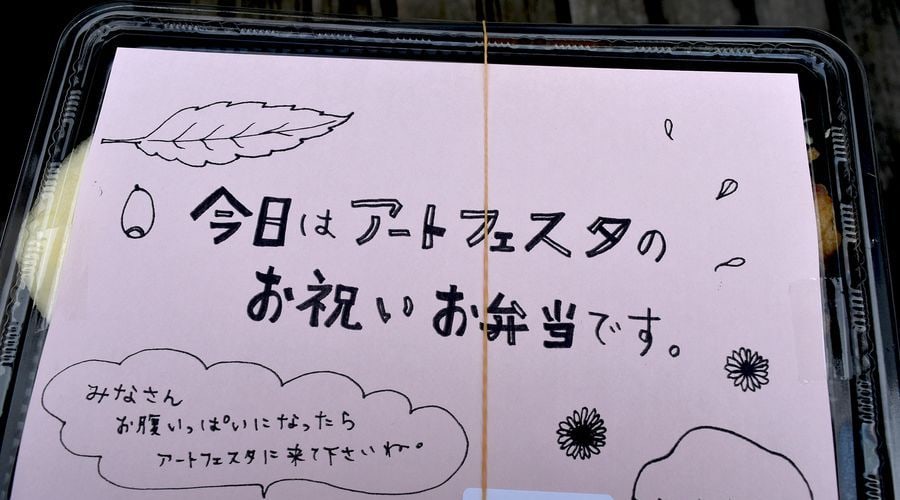 今日はアートフェスタの
お祝いお弁当です。
みなさん
お腹いっぱいになったら
アートフェスタに来て下さいね。